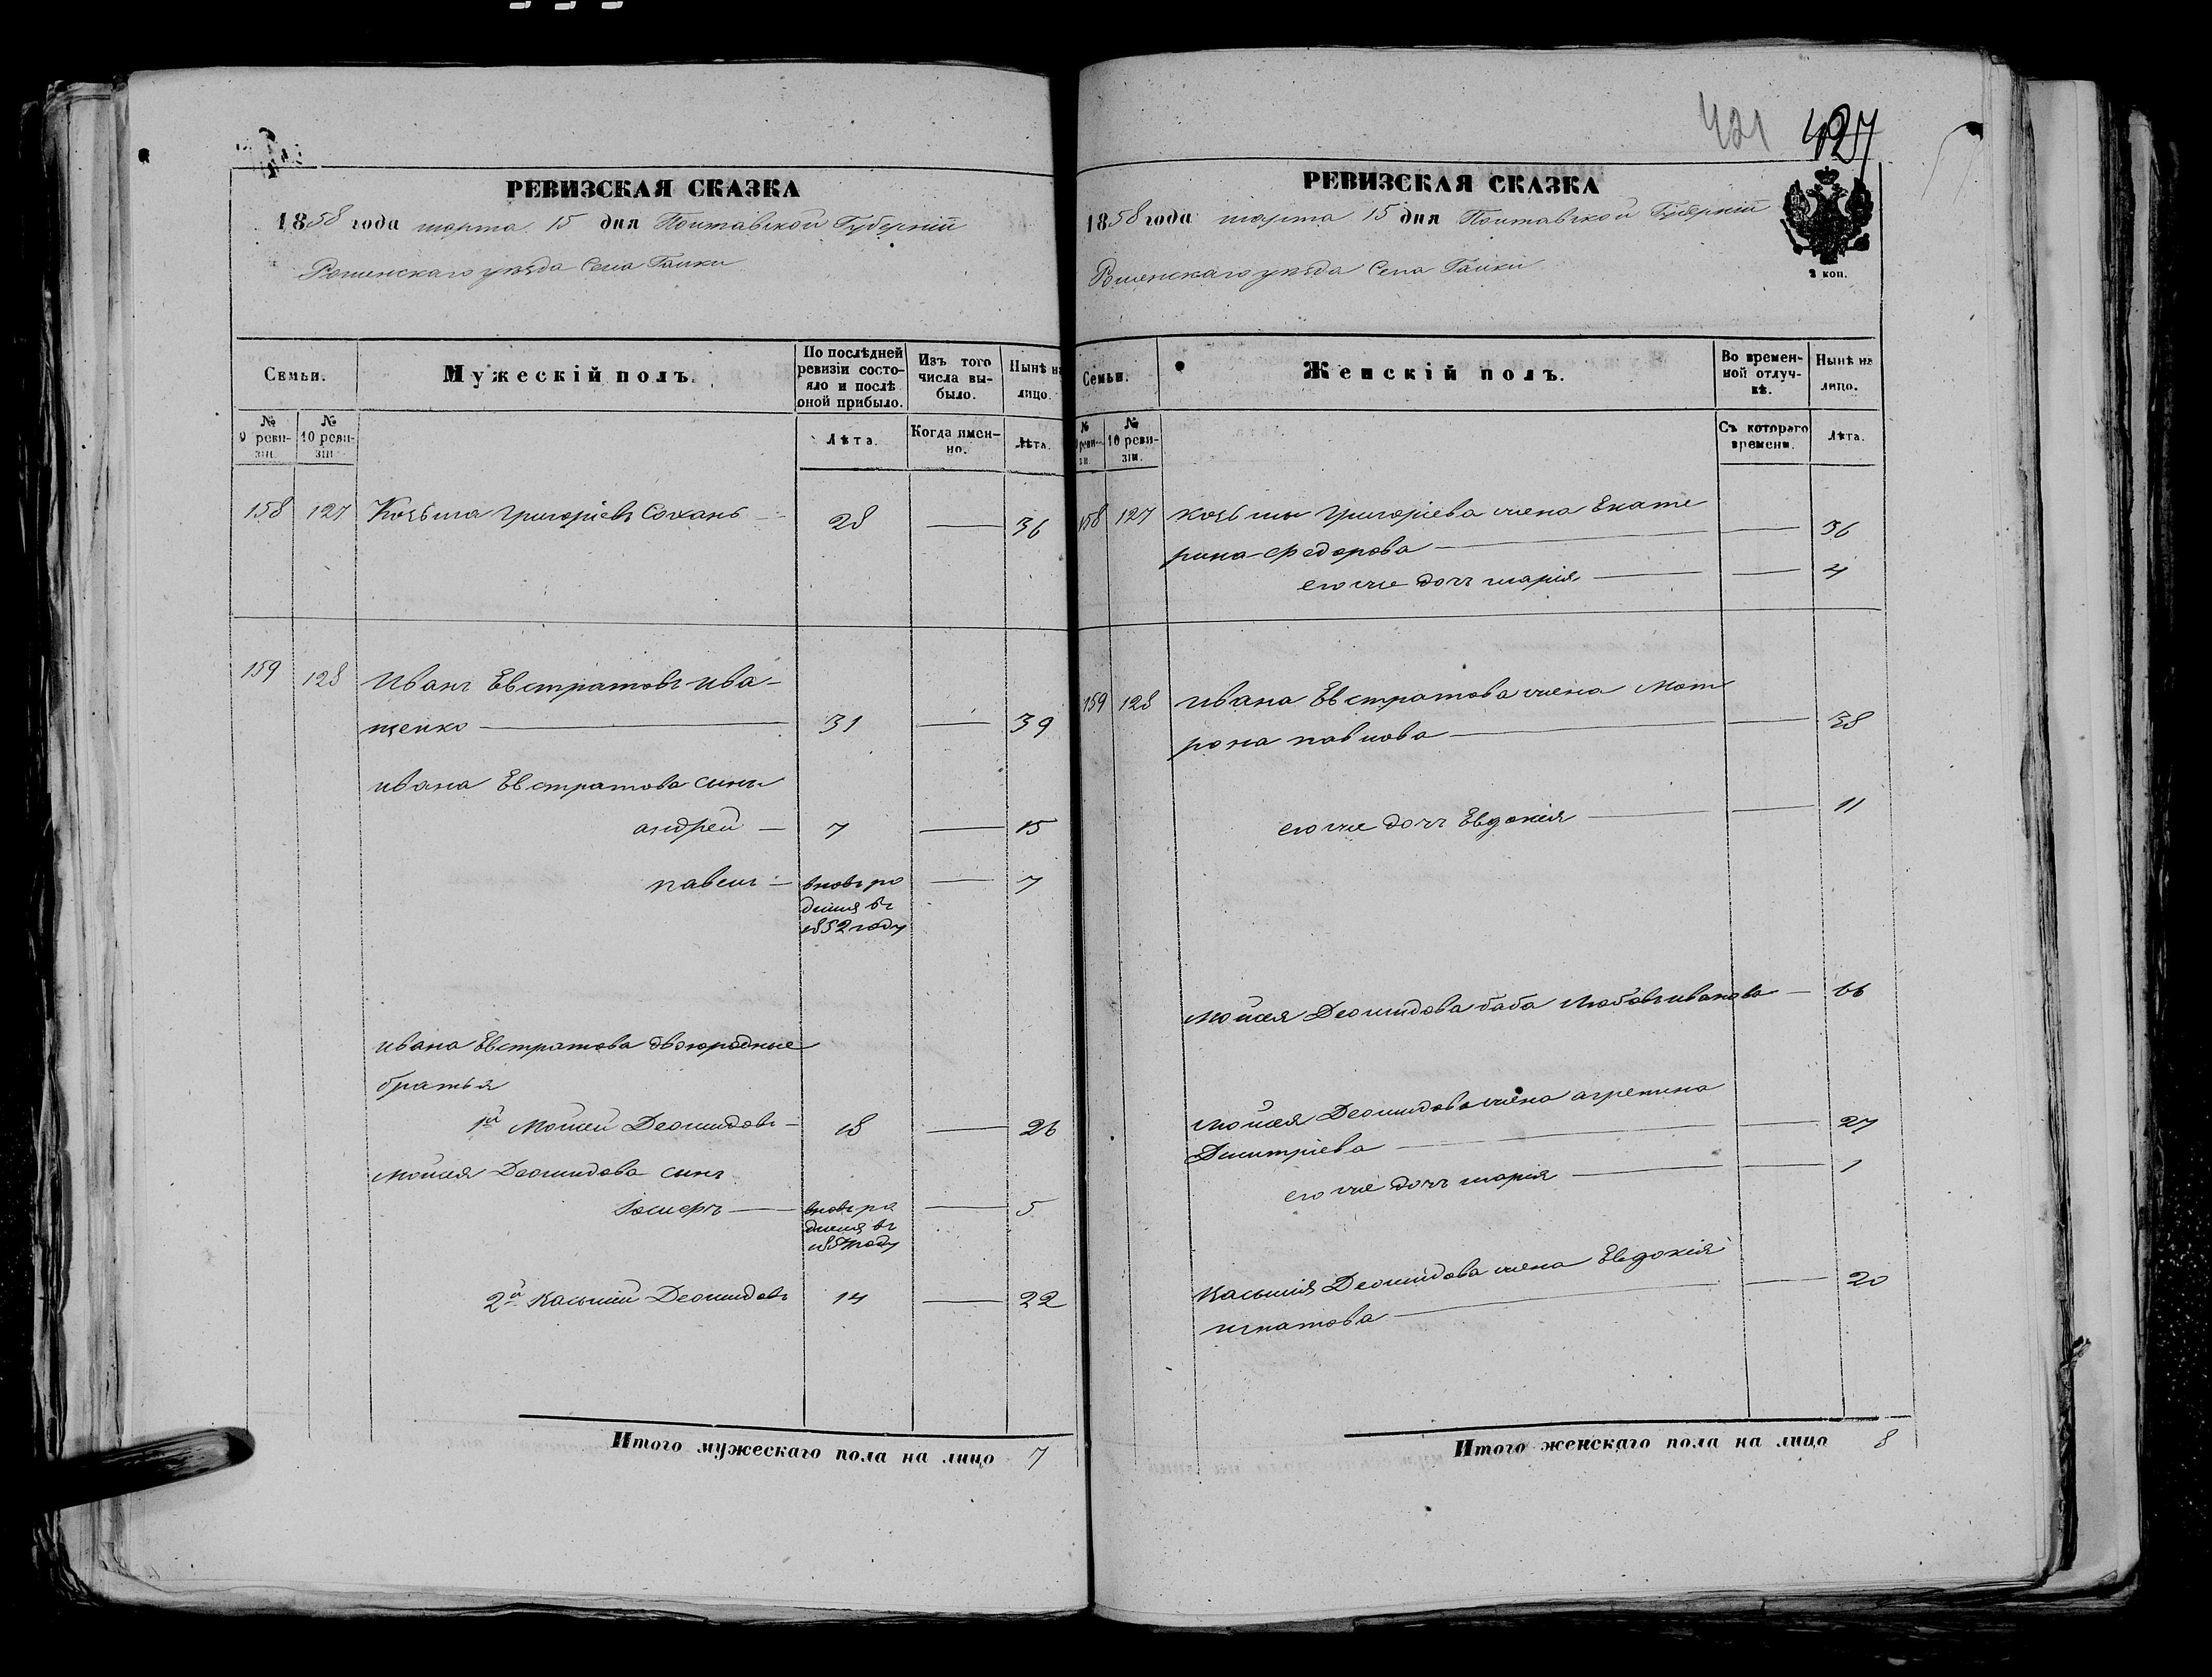 РЕВИЗСКАЯ СКАЗКА
1858 года марта 15 дня Полтавской Губерніи
Роменскаго уѣзда Села Галки
Семьи.
Мужескій полъ.
По послѣдней ревизіи состояло и послѣ оной прибыло.
Изъ того числа выбыло.
Нынѣ на лицо.
№ 9 ревизіи.
№ 10 ревизіи.
Лѣта.
Когда именно.
Лѣта.
158 127 Козьма Григоріевъ Сохань 28 36
159 128 Иванъ Евстратовъ Ива-
щенко 31 39
Ивана Евстратова сыны
андрей 7 15
павелъ вновь ро 7
дился въ
1852 году
Ивана Евстратова двоюродные
братья
1й Мойсей Деомидовъ 18 26
Мойсея Деомидова сынъ
Іосифъ вновь ро 5
дился въ
году
2й Касьянъ Деомидовъ 14 22
Итого мужескаго пола на лицо 7
421 427
РЕВИЗСКАЯ СКАЗКА
1858 года марта 15 дня Полтавской Губерніи
Роменскаго уѣзда Села Галки
2 коп.
Семьи.
Женскій полъ.
Во временной отлучкѣ.
Нынѣ на лицо.
№ 9 ревизіи.
№ 10 ревизіи.
Съ котораго времени.
Лѣта.
158 127 Козьмы Григоріева жена Екате
рина Федорова 36
его же дочь марія 4
159 128 Ивана Евстратова жена Мот
рона павлова 38
его же дочь Евдокія 11
Мойсея Деомидова баба Любовь иванова 66
Мойсея Деомидова жена агрепина
Димитріева 27
его же дочь марія 1
Деомидова жена Евдокія
игнатова 20
Итого женскаго пола на лицо 8